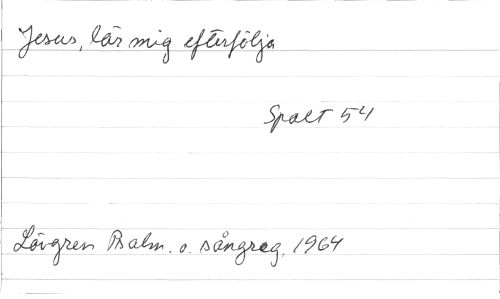 Jesus, lär mig efterfölja
Spalt 54
Lövgren Psalm. o. sångreg. 1964